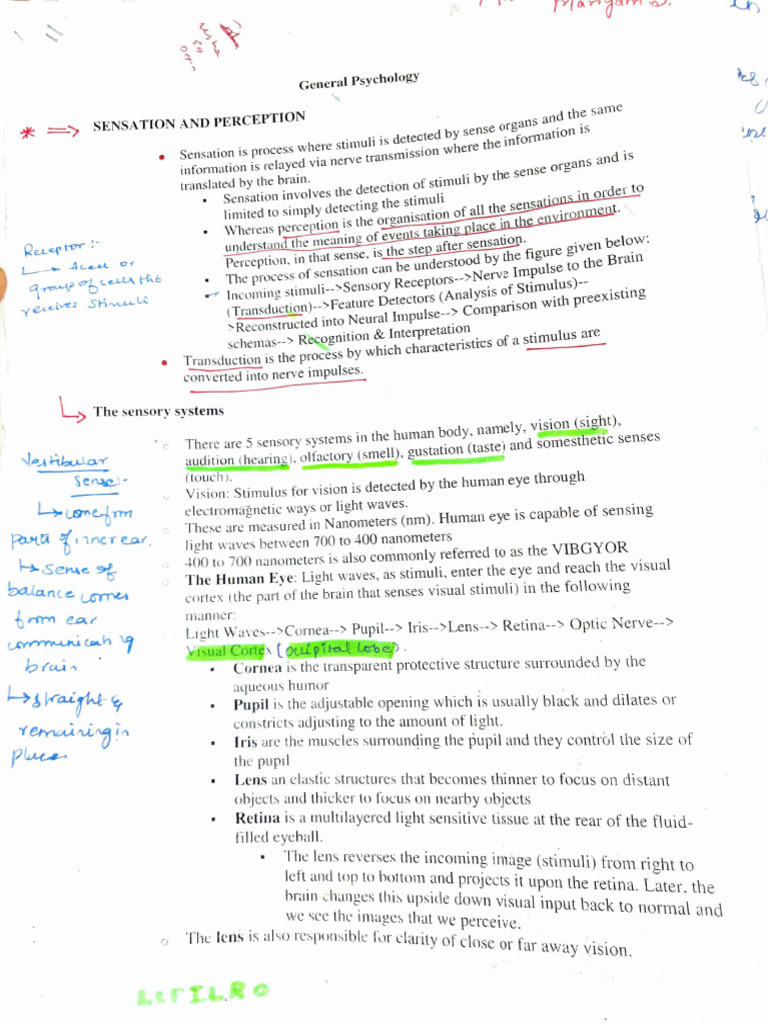 General Psychology
* ⇒ SENSATION AND PERCEPTION
• Sensation is process where stimuli is detected by sense organs and the same
information is relayed via nerve transmission where the information is
translated by the brain.
▪ Sensation involves the detection of stimuli by the sense organs and is
limited to simply detecting the stimuli
▪ Whereas perception is the organisation of all the sensations in order to
understand the meaning of events taking place in the environment.
Perception, in that sense, is the step after sensation.
▪ The process of sensation can be understood by the figure given below:
Incoming stimuli-->Sensory Receptors-->Nerve Impulse to the Brain
(Transduction)-->Feature Detectors (Analysis of Stimulus)--
>Reconstructed into Neural Impulse--> Comparison with preexisting
schemas--> Recognition & Interpretation
• Transduction is the process by which characteristics of a stimulus are
converted into nerve impulses.
Receptor:-
↳ A cell or
group of cells tht
receives stimuli
↳ The sensory systems
○ There are 5 sensory systems in the human body, namely, vision (sight),
audition (hearing), olfactory (smell), gustation (taste) and somesthetic senses
(touch).
○ Vision: Stimulus for vision is detected by the human eye through
electromagnetic ways or light waves.
○ These are measured in Nanometers (nm). Human eye is capable of sensing
light waves between 700 to 400 nanometers
○ 400 to 700 nanometers is also commonly referred to as the VIBGYOR
○ The Human Eye: Light waves, as stimuli, enter the eye and reach the visual
cortex (the part of the brain that senses visual stimuli) in the following
manner:
Light Waves-->Cornea--> Pupil--> Iris-->Lens--> Retina--> Optic Nerve-->
Visual Cortex (occipital lobe).
▪ Cornea is the transparent protective structure surrounded by the
aqueous humor
▪ Pupil is the adjustable opening which is usually black and dilates or
constricts adjusting to the amount of light.
▪ Iris are the muscles surrounding the pupil and they control the size of
the pupil
▪ Lens an elastic structures that becomes thinner to focus on distant
objects and thicker to focus on nearby objects
▪ Retina is a multilayered light sensitive tissue at the rear of the fluid-
filled eyeball.
▪ The lens reverses the incoming image (stimuli) from right to
left and top to bottom and projects it upon the retina. Later, the
brain changes this upside down visual input back to normal and
we see the images that we perceive.
○ The lens is also responsible for clarity of close or far away vision.
Vestibular
Sense:-
↳ come frm
parts of inner ear.
↳ Sense of
balance comes
from ear
communicating
brain
↳ straight &
remaining in
place